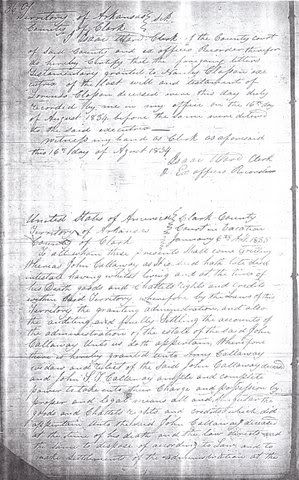 Territory of Arkansas Sct.
County of Clark
I Isaac Ward Clerk of the County Court
of said County and ex officio Recorder therefor
do hereby Certify that the foregoing letters
Testamentary granted to Clopton
of the last will and testament of
Clopton deceased were this day duly
recorded by me in my office on the 16th day
of August 1834 before the same were delivered
to the said executrix
Witness my hand as Clerk as aforesaid
this 16th day of August 1834
Isaac Ward Clerk
& Ex officio Recorder
United States of America Clark County
Territory of Arkansas Court in Vacation
County of Clark January 1835
To all whom these presents shall come Greeting
Whereas John Callaway as it is said hath late died
intestate having whilst living and at the time of
his Death goods and Chattels rights and Credits
within said Territory, whereof by the Laws of this
Territory the granting administration and also
the auditing and finally settling the accounts of
the administration of the estate of the said John
Callaway Unto us doth appertain, Wherefore
there is hereby granted unto Amy Callaway
widow and relict of the said John Callaway deceased
and John S. T. Callaway ample and complete
power to take into their Charge and possession by
proper and legal means all and singular the
goods and Chattels rights and credits which did
appertain Unto the said John Callaway deceased
at the time of his death and the
and them to dispose of according to Law, and to
make settlement of the administration at the